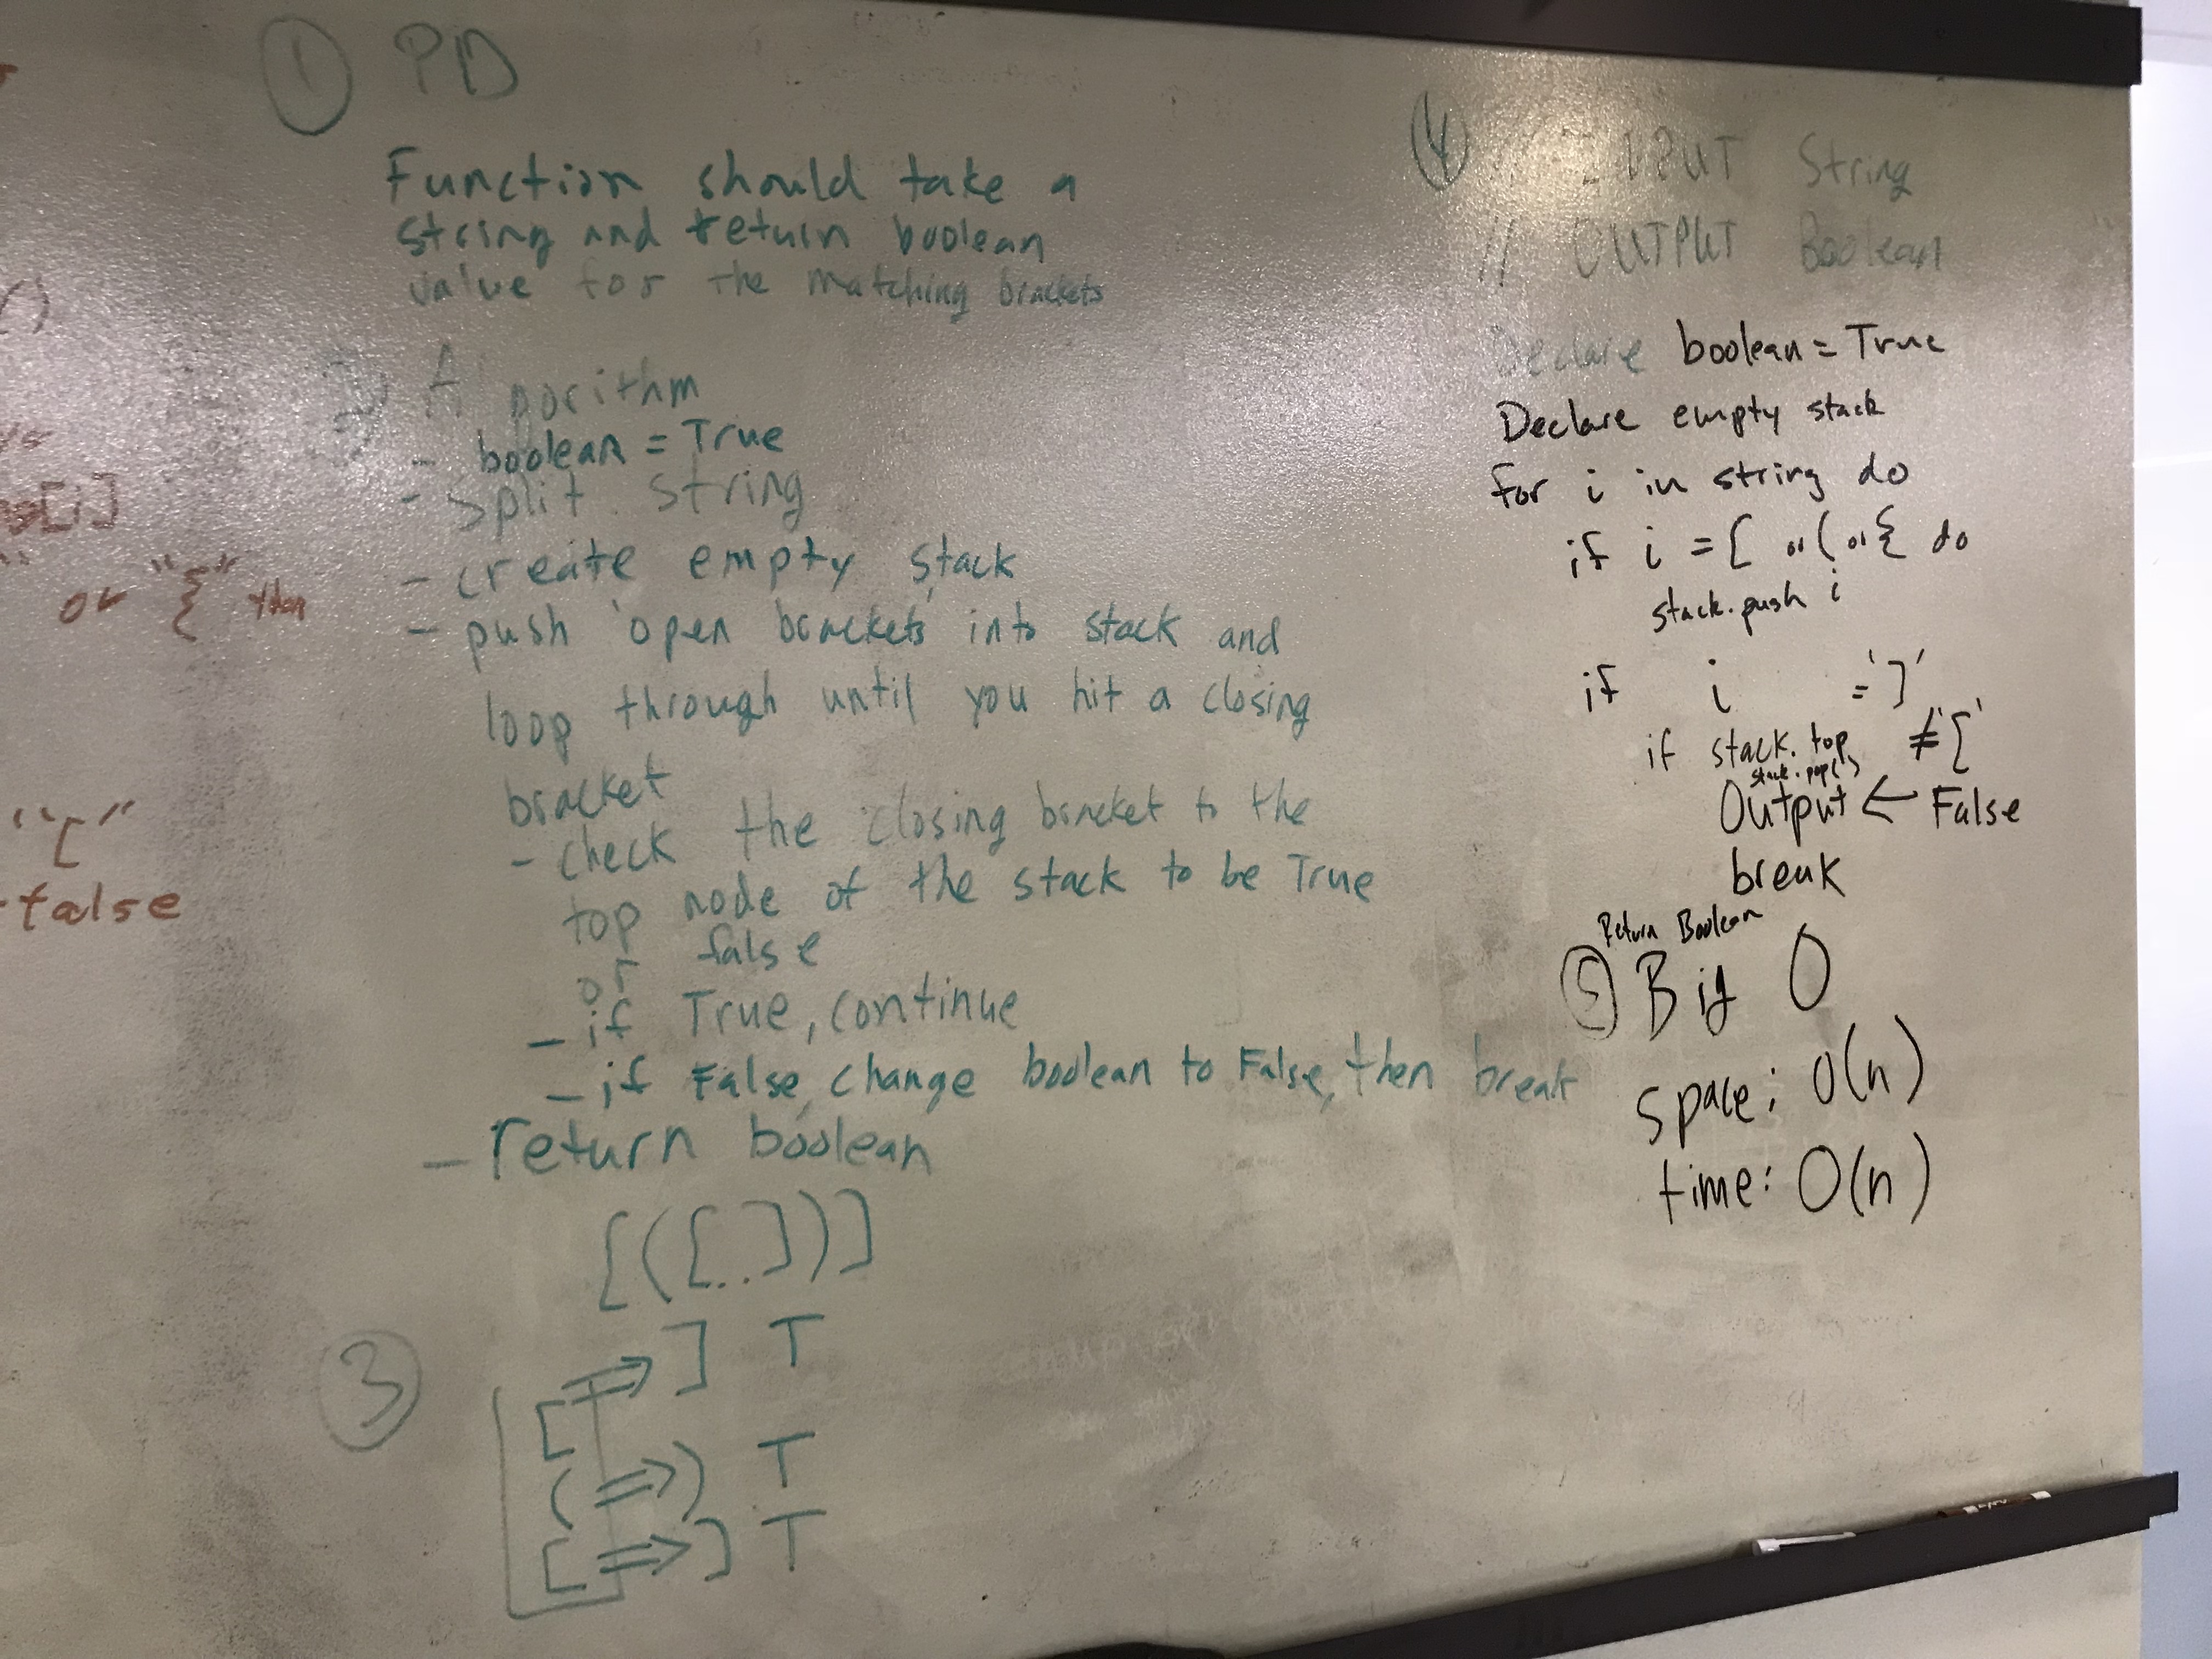 ()
[i]
or "{" then
"["
false
① PD
Function should take a
string and return boolean
value for the matching brackets
2) Algorithm
- boolean = True
- split string
- create empty stack
- push 'open brackets' into stack and
loop through until you hit a closing
bracket
- check the closing bracket to the
top node of the stack to be True
or false
- if True, continue
- if False, change boolean to False, then break
- return boolean
[([..])]
③
[ ⇒ ] T
( ⇒ ) T
[ ⇒ ] T
④ // INPUT String
// OUTPUT Boolean
Declare boolean = True
Declare empty stack
for i in string do
if i = [ or ( or { do
stack.push i
if i = ']'
if stack.top ≠ '['
stack.pop()
Output ← False
break
Return Boolean
⑤ Big O
space: O(n)
time: O(n)